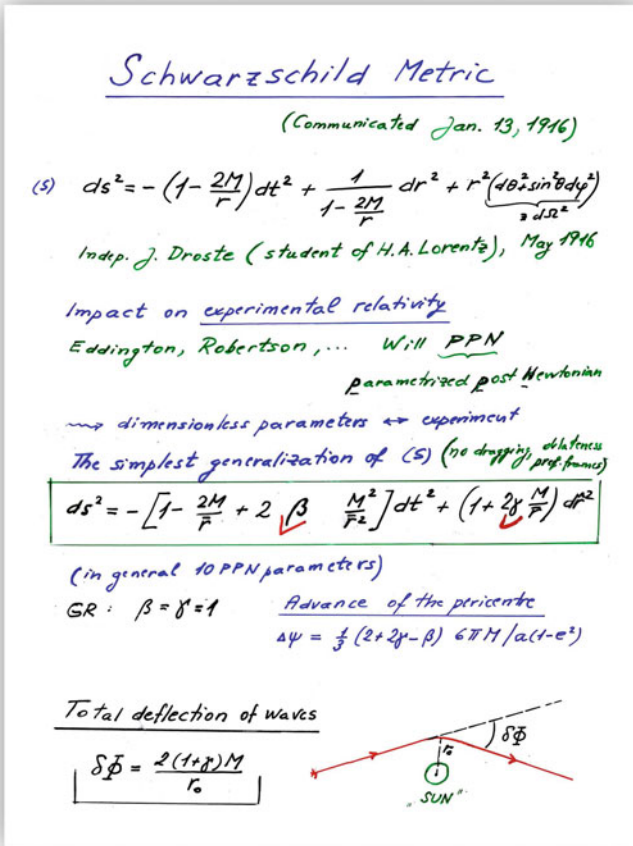 Schwarzschild Metric
(Communicated Jan. 13, 1916)
(S) ds² = - (1 - 2M/r) dt² + 1/(1 - 2M/r) dr² + r² (dθ² + sin²θ dφ²)
≡ dΩ²
Indep. J. Droste (student of H.A. Lorentz), May 1916
Impact on experimental relativity
Eddington, Robertson, ... Will PPN
parametrized post Newtonian
⇝ dimensionless parameters ↔ experiment
The simplest generalization of (S) (no dragging, oblateness
pref. frames)
ds² = - [1 - 2M/r̄ + 2 β M²/r̄²] dt² + (1 + 2γ M/r̄) dr̄²
(in general 10 PPN parameters)
GR: β = γ = 1 Advance of the pericentre
Δψ = 1/3 (2+2γ-β) 6πM/a(1-e²)
Total deflection of waves
δΦ = 2(1+γ)M/r₀
δΦ
r₀
"SUN"